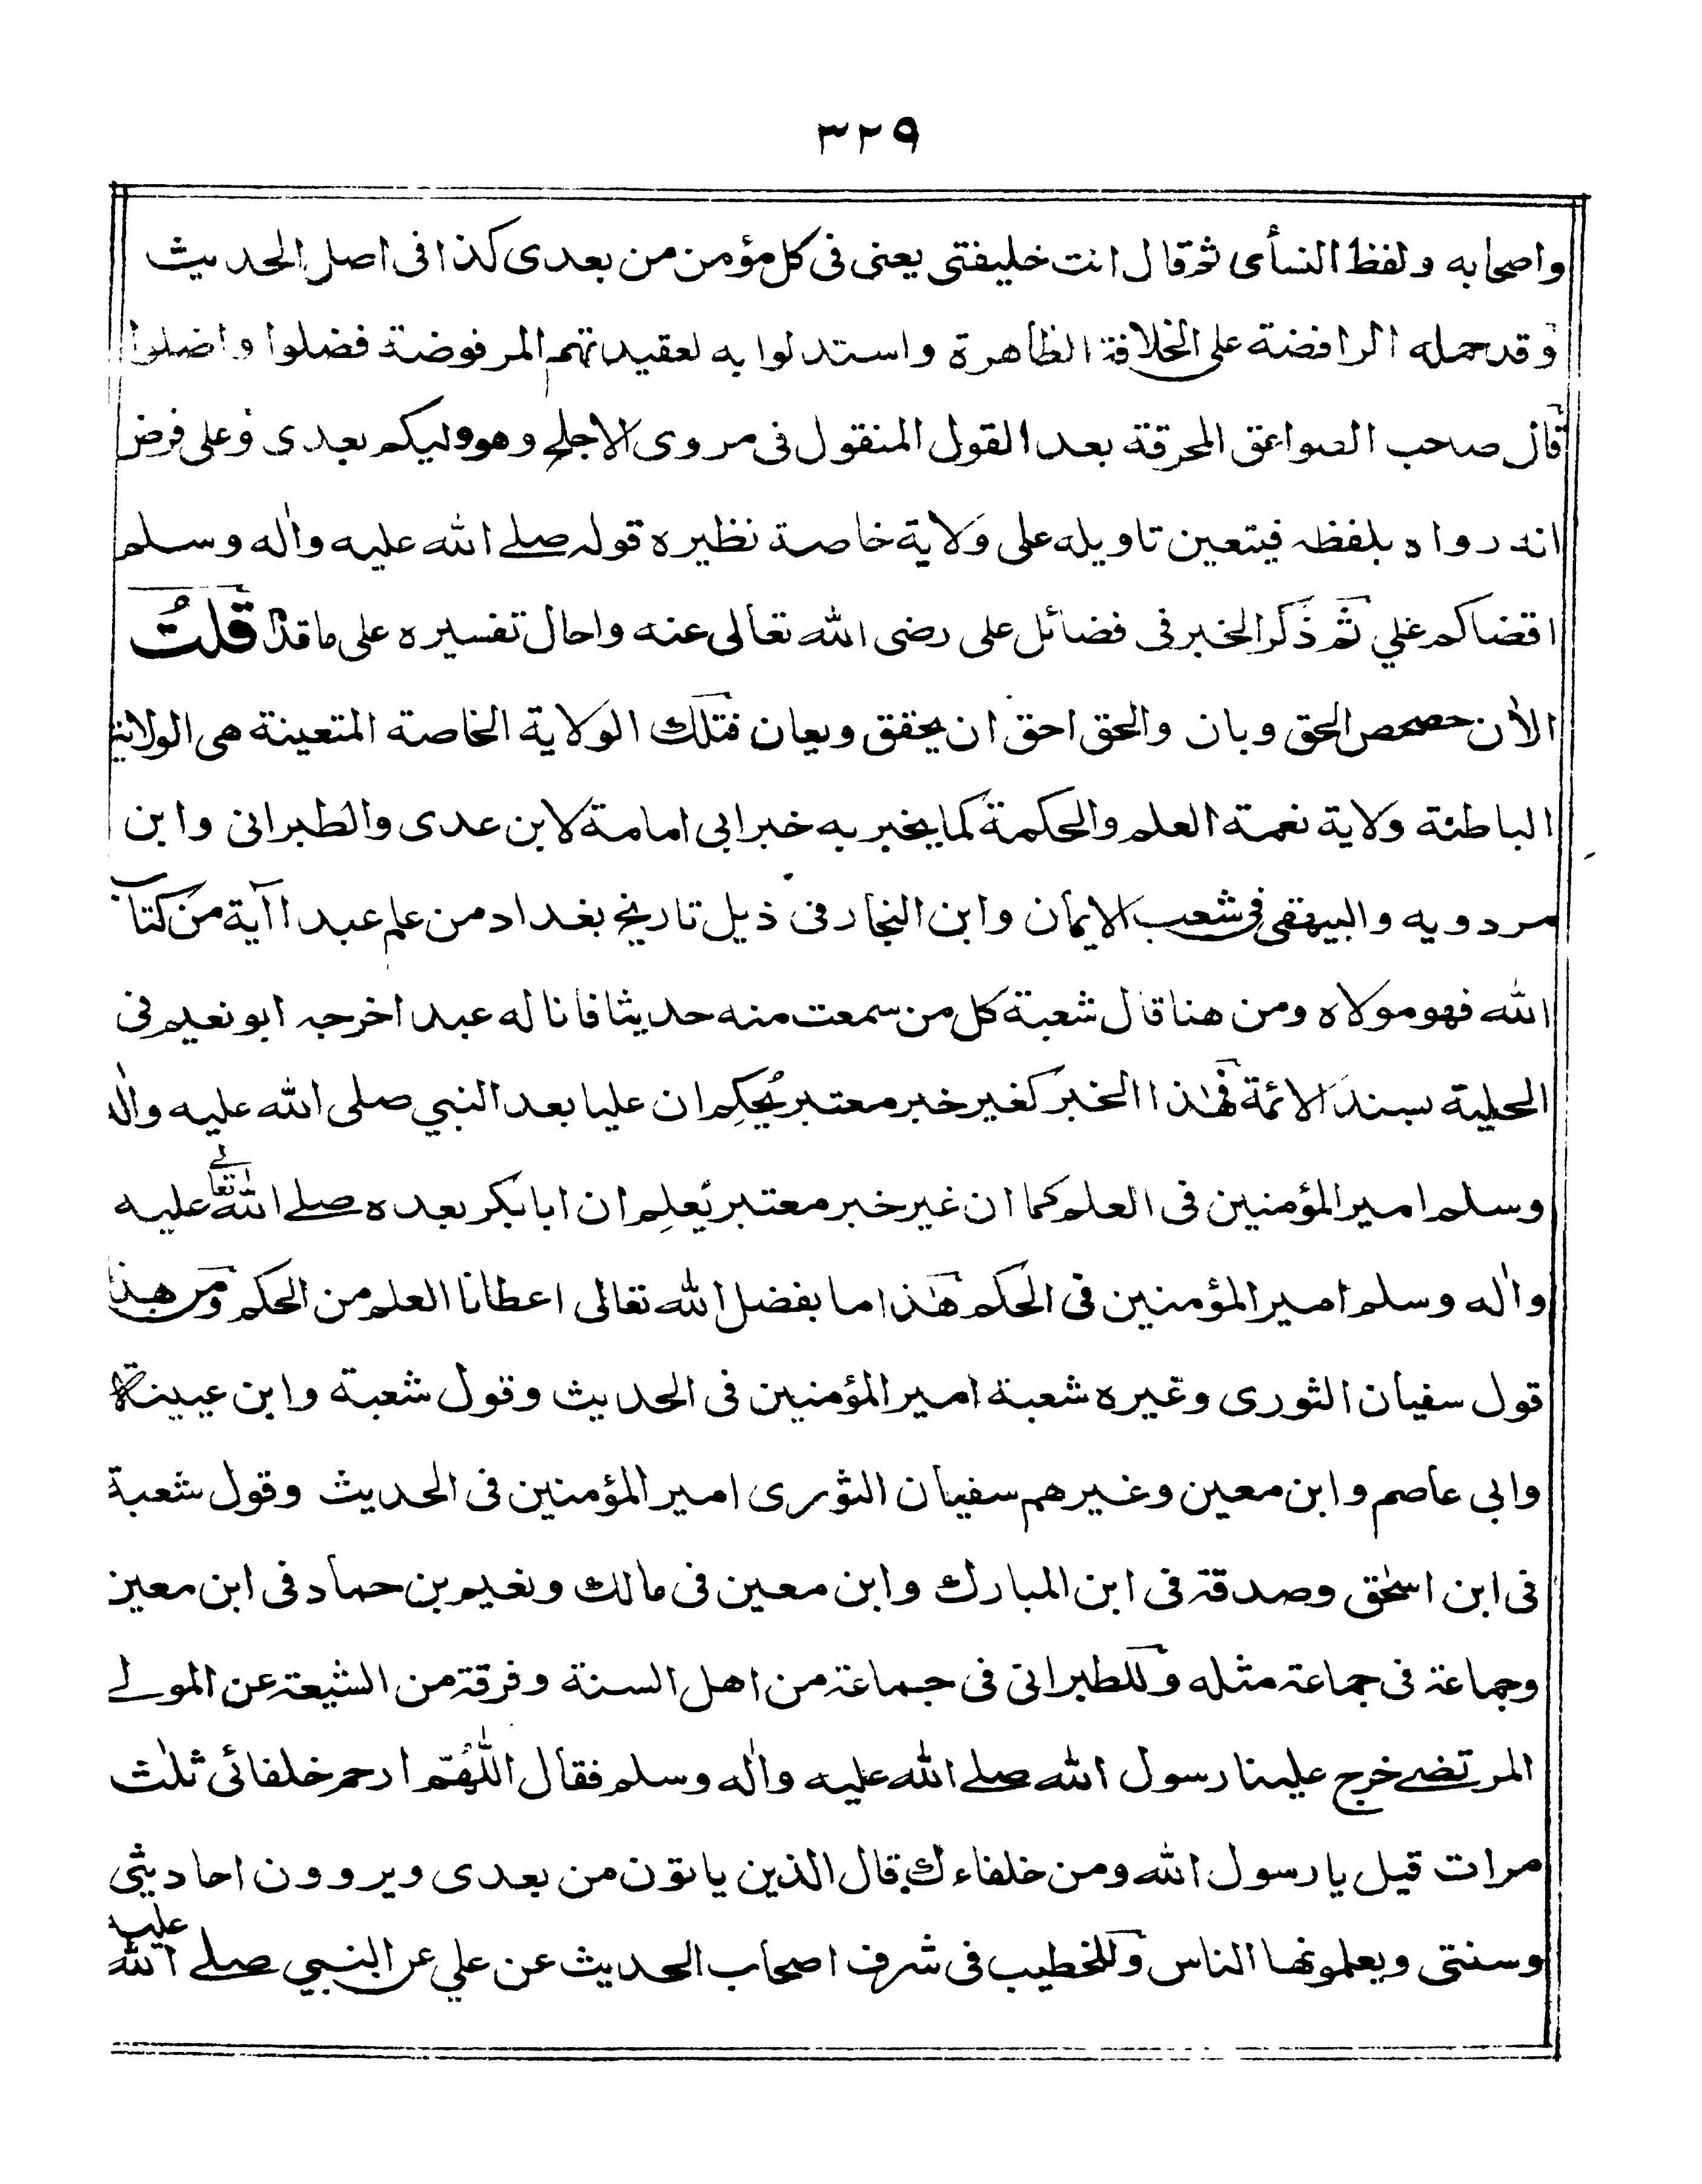 ٣٢٩
واصحابه ولفظ النسأى ثم قال انت خليفتى يعنى فى كل مؤمن من بعدى كذا فى اصل الحديث
وقد حمله الرافضة على الخلافة الظاهرة واستدلوا به لعقيدتهم المرفوضة فضلوا واضلوا
قال صاحب الصواعق المحرقة بعد القول المنقول فى مروى الاجلح وهو وليكم بعدى وعلى فرض
انه رواه بلفظه فيتعين تاويله على ولاية خاصة نظيره قوله صلے الله عليه واٰله وسلم
اقضاكم علي ثم ذكر الخبر فى فضائل على رضى الله تعالى عنه واحال تفسيره على ما قدم قلتُ
الاٰن حصحص الحق وبان والحق احق ان يحقق ويعان فتلك الولاية الخاصة المتعينة هى الولاية
الباطنة ولاية نعمة العلم والحكمة كما يخبر به خبر ابى امامة لابن عدى والطبرانى وابن
مردويه والبيهقى فى شعب الايمان وابن النجار فى ذيل تاريخ بغداد من علم عبدا اٰية من كتاب
الله فهو مولاه ومن هنا قال شعبة كل من سمعت منه حديثا فانا له عبد اخرجه ابو نعيم فى
الحلية بسند الائمة فهٰذا الخبر كغير خبر معتبر يُحكِم ان عليا بعد النبي صلى الله عليه واٰله
وسلم امير المؤمنين فى العلم كما ان غير خبر معتبر يُعلِم ان ابابكر بعده صلے الله تعالے عليه
واٰله وسلم امير المؤمنين فى الحكم هٰذا ما بفضل الله تعالى اعطانا العلم من الحكم ومن هذا
قول سفيان الثورى وغيره شعبة امير المؤمنين فى الحديث وقول شعبة وابن عيينة
وابى عاصم وابن معين وغيرهم سفيان الثورى امير المؤمنين فى الحديث وقول شعبة
فى ابن اسحٰق وصدقة فى ابن المبارك وابن معين فى مالك ونعيم بن حماد فى ابن معين
وجماعة فى جماعة مثله وللطبرانى فى جماعة من اهل السنة وفرقة من الشيعة عن المولے
المرتضے خرج علينا رسول الله صلے الله عليه واٰله وسلم فقال اللّٰهُمّ ارحم خلفائى ثلٰث
مرات قيل يا رسول الله ومن خلفاءك قال الذين ياتون من بعدى ويروون احاديثى
وسنتى ويعلمونها الناس وللخطيب فى شرف اصحاب الحديث عن علي عن النبي صلے الله عليه